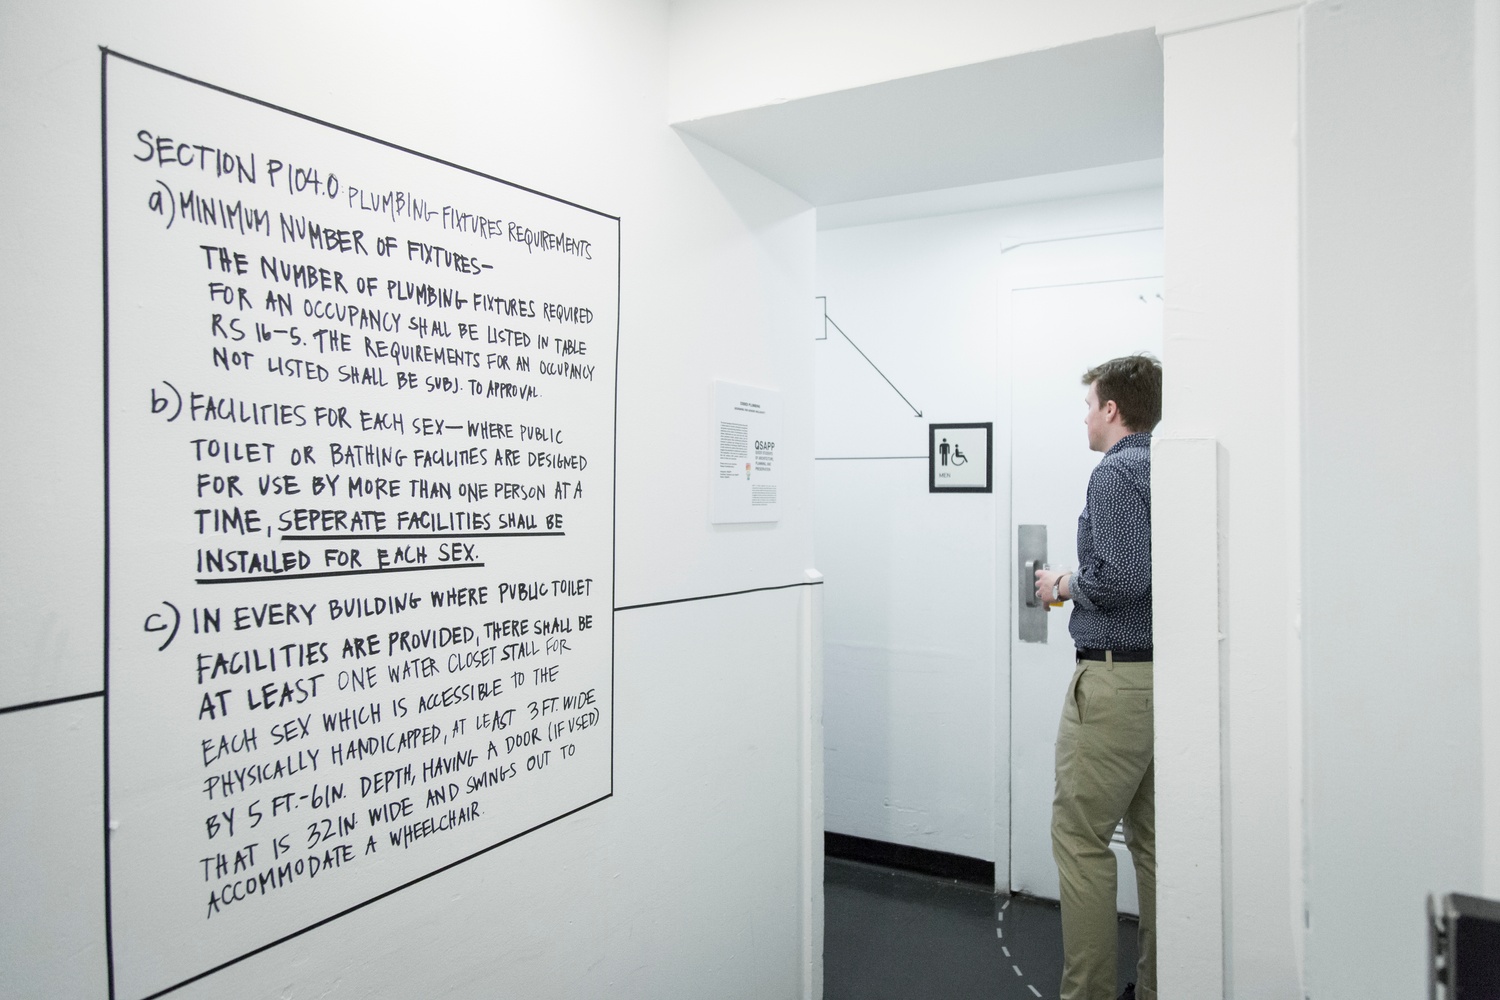 SECTION P104.0: PLUMBING FIXTURES REQUIREMENTS
a) MINIMUM NUMBER OF FIXTURES—
THE NUMBER OF PLUMBING FIXTURES REQUIRED
FOR AN OCCUPANCY SHALL BE LISTED IN TABLE
RS 16-5. THE REQUIREMENTS FOR AN OCCUPANCY
NOT LISTED SHALL BE SUBJ. TO APPROVAL.
b) FACILITIES FOR EACH SEX— WHERE PUBLIC
TOILET OR BATHING FACILITIES ARE DESIGNED
FOR USE BY MORE THAN ONE PERSON AT A
TIME, SEPERATE FACILITIES SHALL BE
INSTALLED FOR EACH SEX.
c) IN EVERY BUILDING WHERE PUBLIC TOILET
FACILITIES ARE PROVIDED, THERE SHALL BE
AT LEAST ONE WATER CLOSET STALL FOR
EACH SEX WHICH IS ACCESSIBLE TO THE
PHYSICALLY HANDICAPPED, AT LEAST 3 FT. WIDE
BY 5 FT.-6IN. DEPTH, HAVING A DOOR (IF USED)
THAT IS 32IN. WIDE AND SWINGS OUT TO
ACCOMMODATE A WHEELCHAIR.
QSAPP
MEN